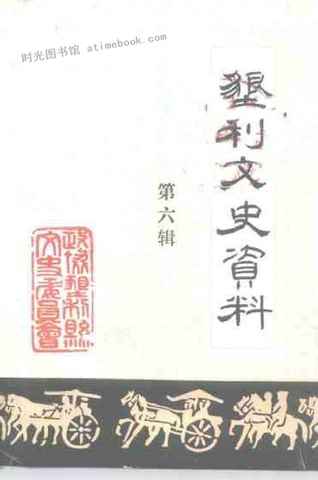 时光图书馆 atimebook.com
墾利文史資料
第六辑
政协墾利縣
文史委員會